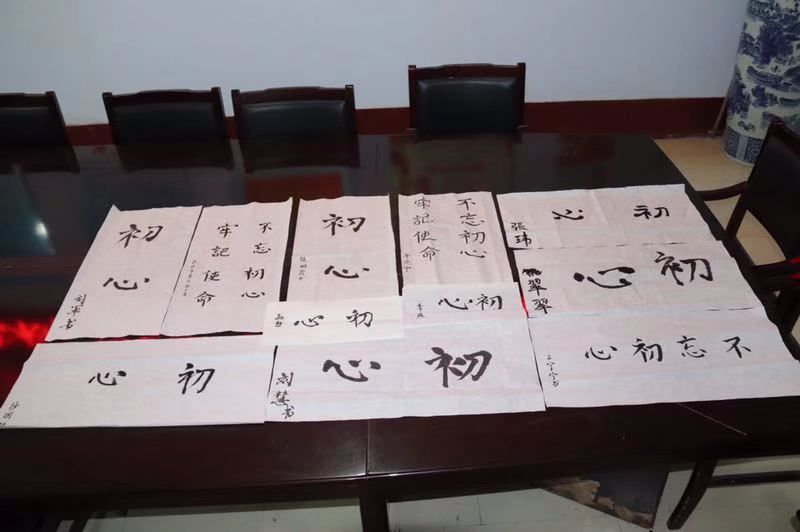 初心
刘军书
不忘初心
牢记使命
初心
不忘初心
牢記使命
初心
張玮
初心
翠翠
初心
初心
初心
初心
刘慧书
不忘初心